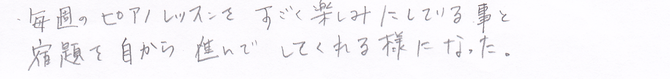 ・毎週のピアノレッスンを すごく楽しみにしている事と
宿題を自から進んでしてくれる様になった。